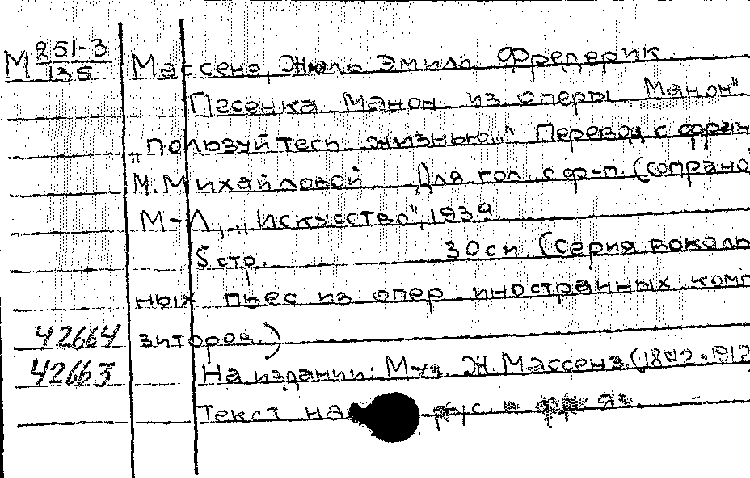 М 251-3/135 Массенэ, Жюль Эмиль Фредерик.
Песенка Манон из оперы "Манон"
"Пользуйтесь жизнью..." Перевод с фран
М. Михайловой Для гол. с ф-п. (сопрано
М-Л, "Искусство", 1939
5 стр. 30 см (Серия вокаль
ных пьес из опер иностранных комп
42664 зиторов.)
42663 На издании: Муз. Ж. Массенэ. (1842-1912
Текст на рус и фр яз.